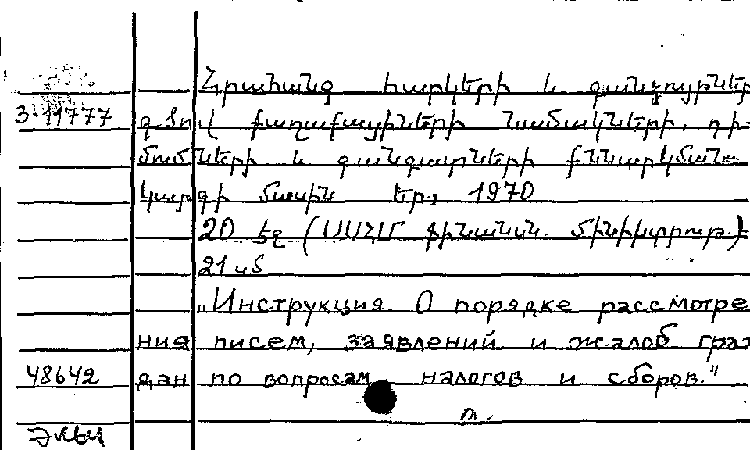 Հրահանգ հարկերի և գանձույթների
3-11777 գծով քաղաքացիների նամակների, դի-
մումների և գանգատների քննարկման
կարգի մասին Եր., 1970
20 էջ (ՍՍՀՄ ֆինանսն. մինիստրութ.)
21 սմ
„Инструкция О порядке рассмотре
ния писем, заявлений и жалоб граж
48642 дан по вопросам налогов и сборов."